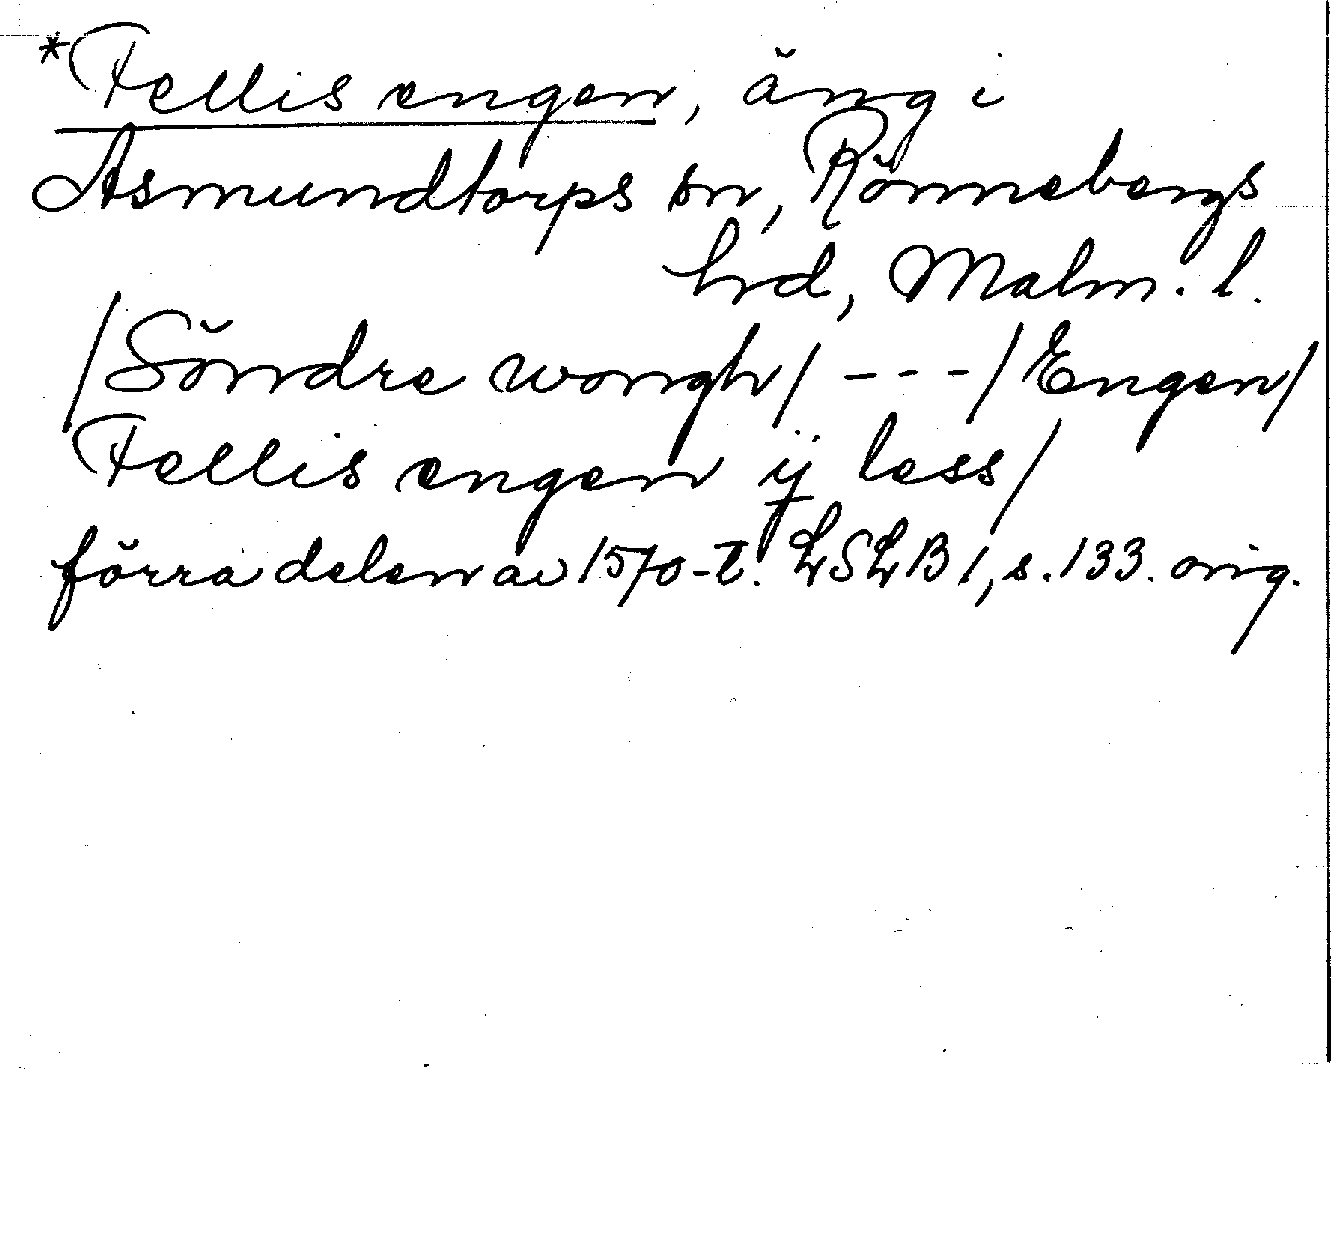 *Fellis engen, äng i
Asmundtorps sn, Rönnebergs
hrd, Malm. l.
/Söndre wongh/ - - - /Engen/
Fellis engen ij less/
förra delen av 1570-t. LSLB 1, s. 133. orig.